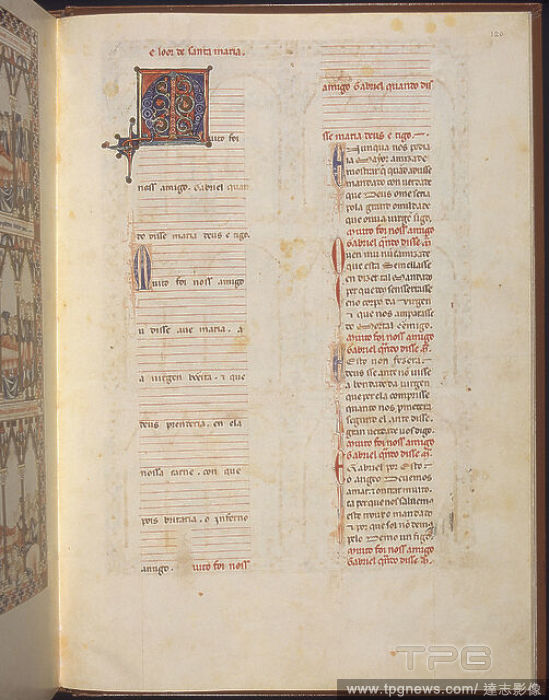 120
e loor de santa maria.
Muito foi
noss amigo. Gabriel quan
do disse maria deus e tigo.
Muito foi noss amigo
u disse aue maria. a
a uirgen beeita. e que
deus prenderia. en ela
nossa carne. con que
pois britaria. o inferno
antigo. uito foi noss
amigo Gabriel quando dis
sse maria deus e tigo.
Nunqua nos podia
ja mayor amizade
mostrar q quand aduisse
mandado con uerdade
que Deus ome seria
pola grand omildade
que ouu a uirgẽ sigo.
Muito foi noss amigo
Gabriel q̃ndo disse m̃
Quen uiu nũca amizade
que esta semellasse
en dizer tal mandado
per que
eno corpo da uirgen
e que nos amparasse
do mortal eemigo.
Muito foi noss amigo
Gabriel q̃ndo disse m̃.
Esto non fezera
deus sse ante nõ uisse
a bondade da uirgen
que per ela comprisse
quanto nos
segund el ante disse.
gran uerdade uos digo.
Muito foi noss amigo
Gabriel q̃ndo disse m̃.
E Gabriel por esto
o angeo deuemos
amar e onrrar muito.
ca per que nos saluemo
este trouxo mandado
e por que sei nõ
pelo demo un figo.
Muito foi noss amigo
Gabriel q̃ndo disse m̃.
TPG
www.tpgnews.com / 達志影像